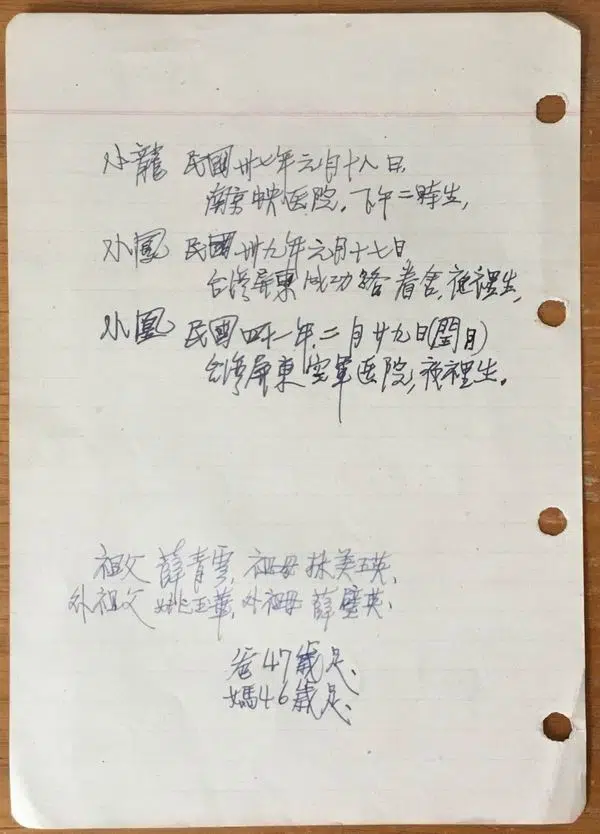 小龍 民國卅七年元月十八日,
南京中央医院, 下午二時生,
小鳳 民國卅九年元月十七日
台灣屏東成功路眷舍, 夜裡生,
小凰 民國四十一年, 二月廿九日(閏月)
台灣屏東空軍医院, 夜裡生。
祖父 薛青雲, 祖母 林美英,
外祖父 姚玉華, 外祖母 薛璧英,
爸47歲足、
媽46歲足、